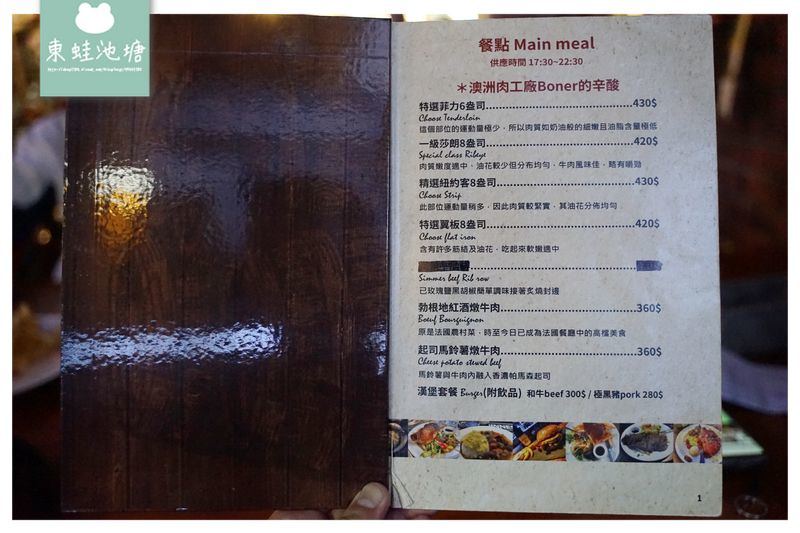 東蛙池塘
餐點 Main meal
供應時間 17:30~22:30
＊澳洲肉工廠Boner的辛酸
特選菲力6盎司 430$
Choose Tenderloin
這個部位的運動量極少，所以肉質如奶油般的細嫩且油脂含量極低
一級莎朗8盎司 420$
Special class Ribeye
肉質嫩度適中、油花較少但分布均勻，牛肉風味佳，略有嚼勁
精選紐約客8盎司 430$
Choose Strip
此部位運動量稍多，因此肉質較緊實，其油花分佈均勻
特選翼板8盎司 420$
Choose flat iron
含有許多筋絡及油花，吃起來軟嫩適中
Simmer beef Rib row
已玫瑰鹽黑胡椒簡單調味接著炙燒封邊
勃根地紅酒燉牛肉 360$
Bœuf Bourguignon
原是法國農村菜，時至今日已成為法國餐廳中的高檔美食
起司馬鈴薯燉牛肉 360$
Cheese potato stewed beef
馬鈴薯與牛肉內融入香濃帕馬森起司
漢堡套餐 Burger(附飲品) 和牛beef 300$ / 極黑豬pork 280$
1